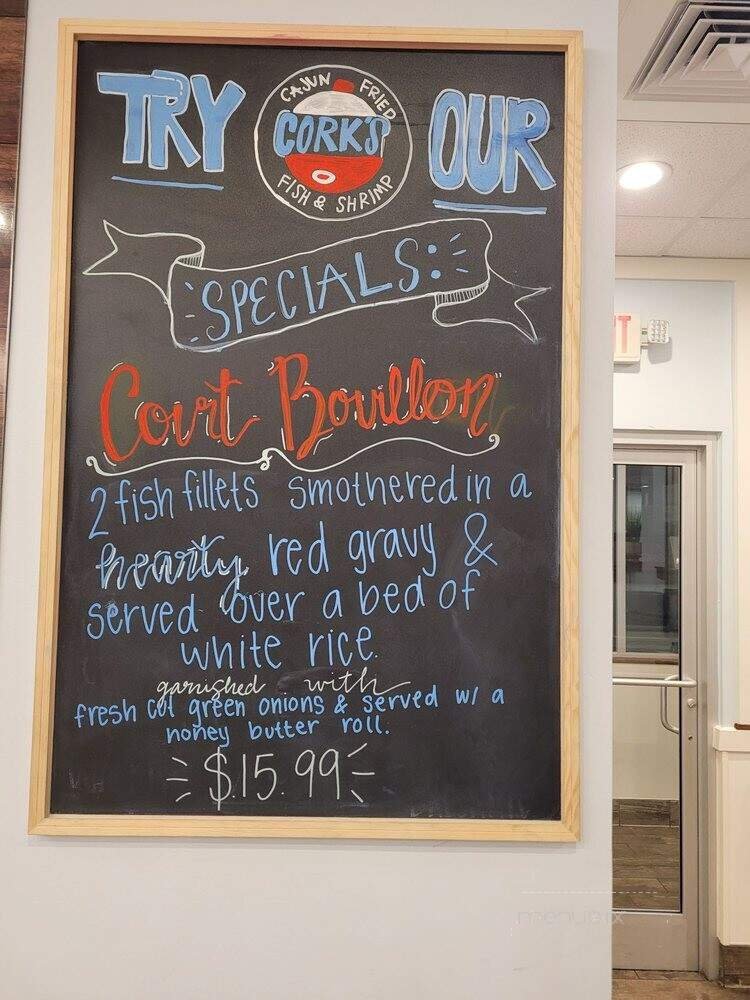 TRY CAJUN FRIED OUR
CORK'S
FISH & SHRIMP
SPECIALS:
Court Bouillon
2 fish fillets smothered in a
hearty red gravy &
served over a bed of
white rice.
garnished with
fresh cut green onions & served w/ a
honey butter roll.
$15.99